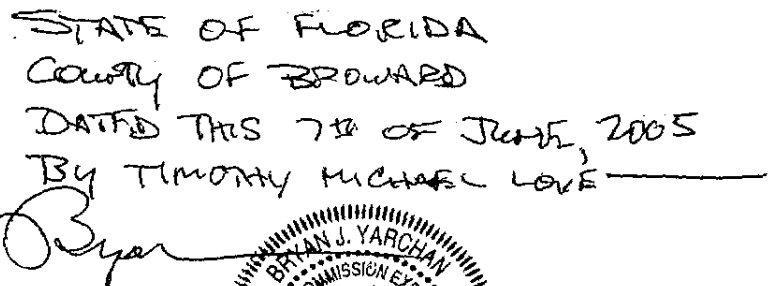 STATE OF FLORIDA
COUNTY OF BROWARD
DATED THIS 7TH OF JUNE, 2005
BY TIMOTHY MICHAEL LOVE
Bryan
BRYAN J. YARCHAN
COMMISSION EXP